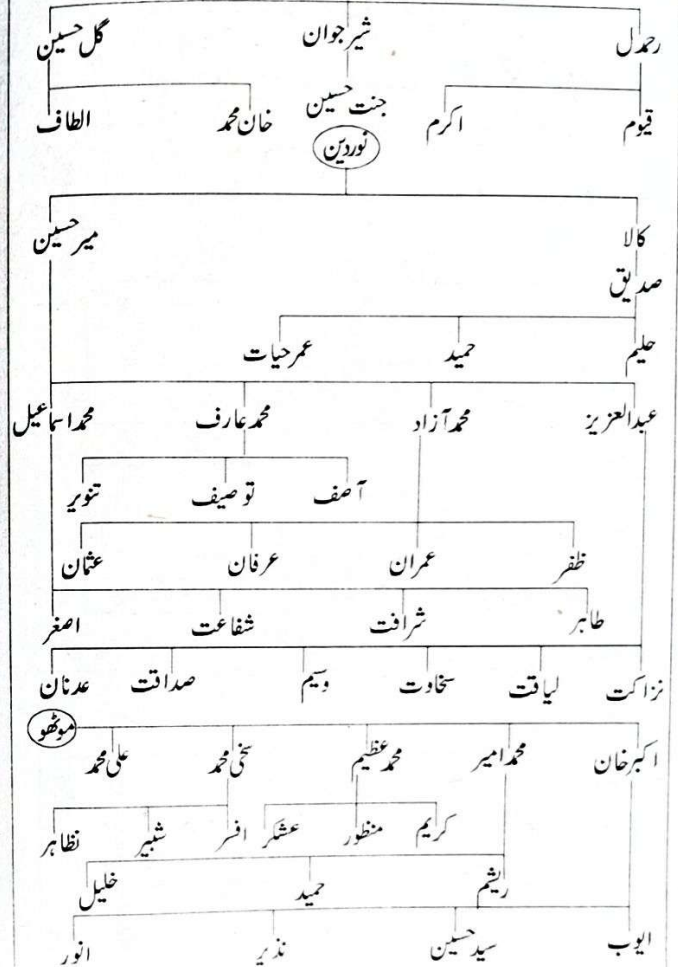 رحمدل شیر جوان گل حسین
قیوم اکرم جنت حسین خان محمد الطاف
نوردین
کالا میر حسین
صدیق
حلیم حمید عمر حیات
عبدالعزیز محمد آزاد محمد عارف محمد اسماعیل
آصف توصیف تنویر
ظفر عمران عرفان عثمان
طاہر شرافت شفاعت اصغر
نزاکت لیاقت سخاوت وسیم صداقت عدنان
موٹھو
اکبر خان محمد امیر محمد عظیم سخی محمد علی محمد
کریم منظور عشکر افسر شبیر نظاہر
ریشم حمید خلیل
ایوب سید حسین نذیر انور